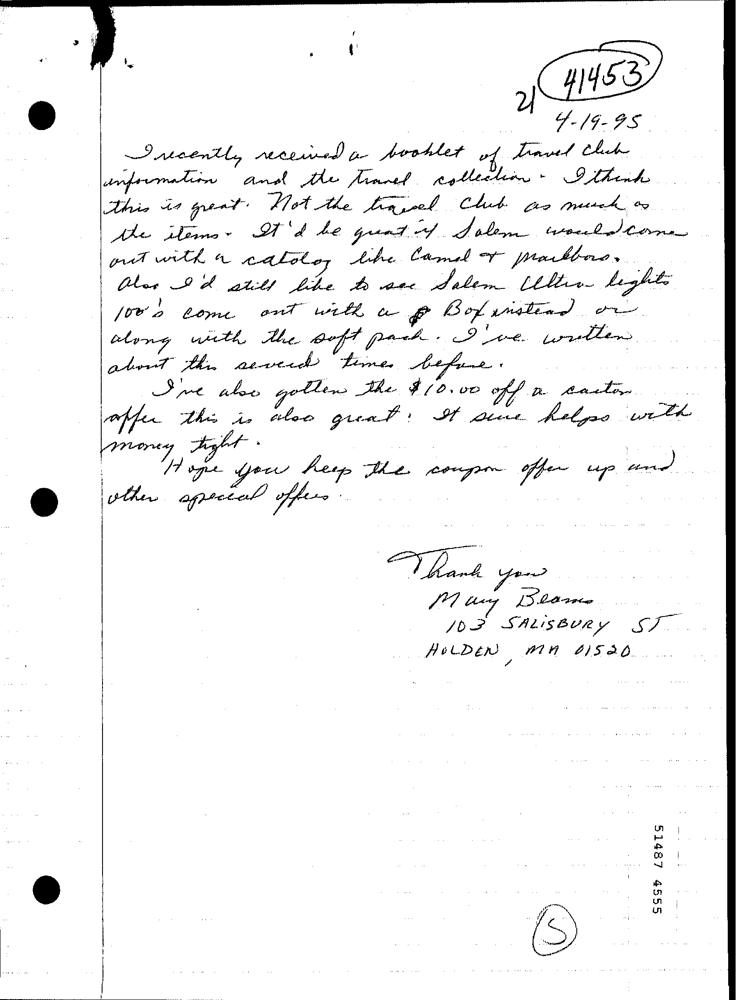 41453
21
4-19-95
I recently received a booklet of travel club
information and the travel collection. I think
this is great. Not the travel club as much as
the items. It'd be great if Salem would come
out with a catolog like Camel & Marlboro.
Also I'd still like to see Salem Ultra lights
100's come out with a Box instead or
along with the soft pack. I've written
about this several times before.
I've also gotten the $10.00 off a carton
offer this is also great! It sure helps with
money tight.
Hope you keep the coupon offer up and
other special offers.
Thank you
Mary Beams
103 SALISBURY ST
HOLDEN, MA 01520
51487 4555
S